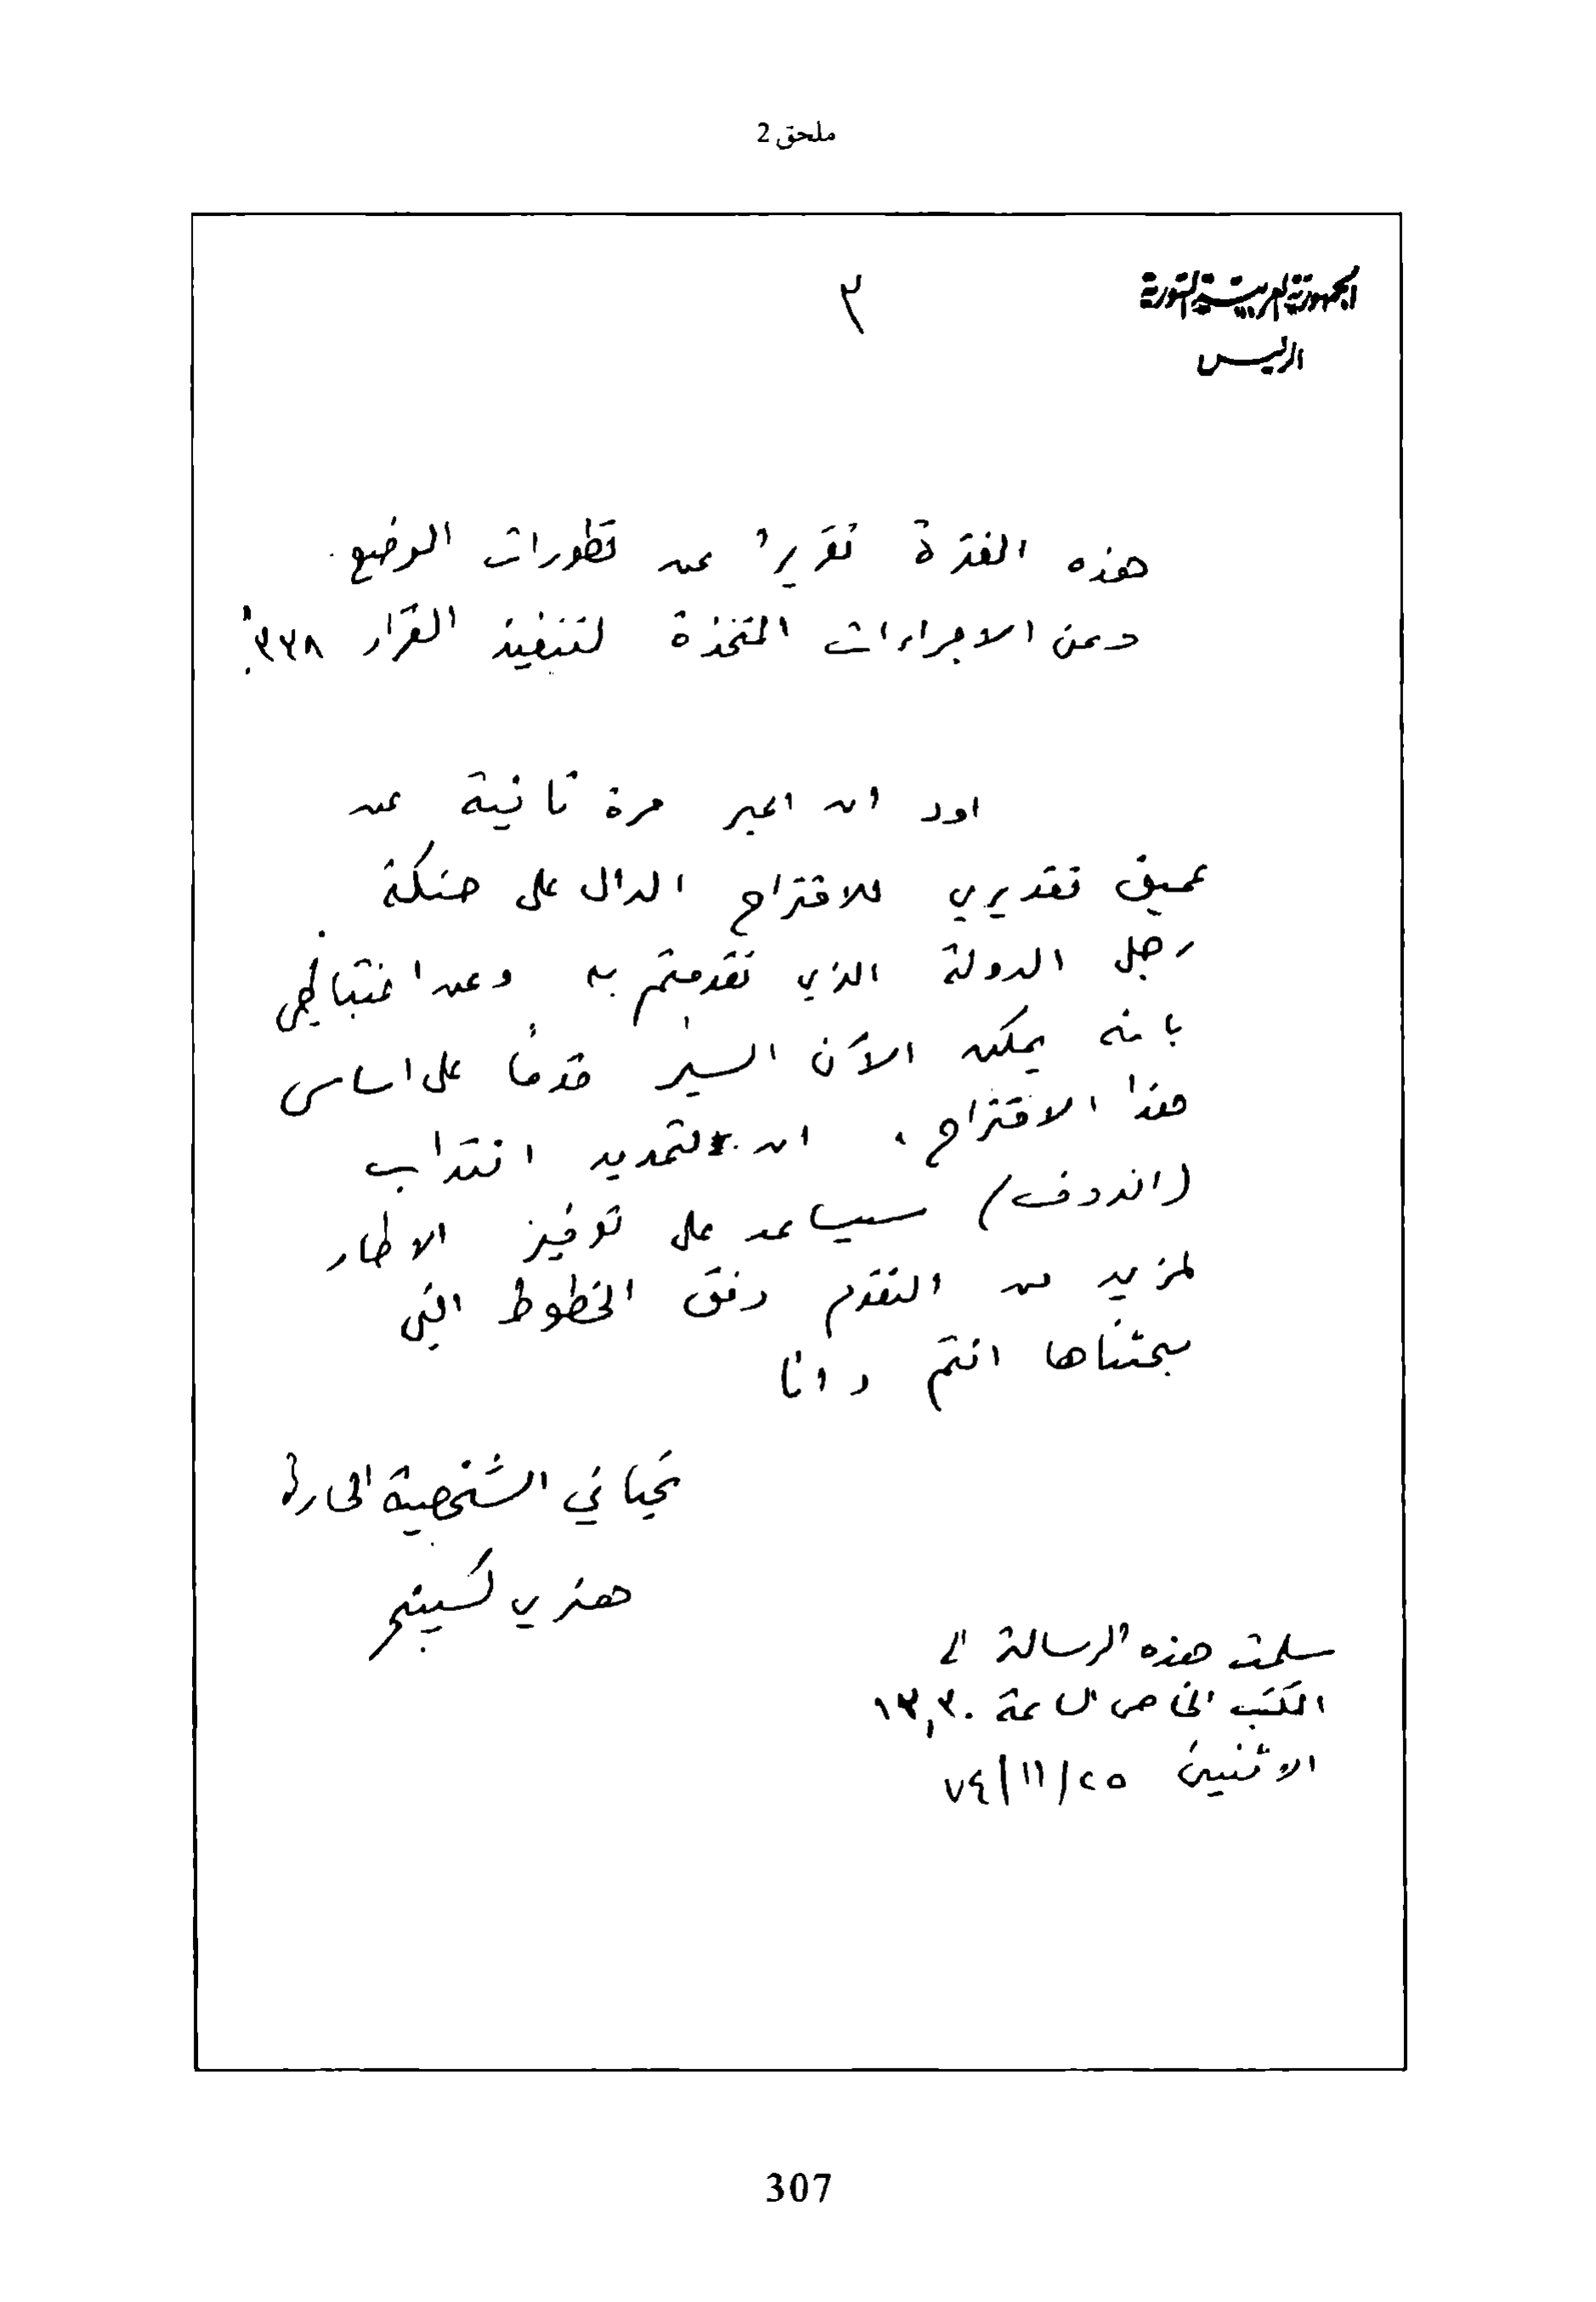 ملحق 2
الجمهورية العربية السورية
٣
الرئيس
هذه الفترة تقريرا عن تطورات الوضع
وعن الاجراءات المتخذة لتنفيذ القرار ٣٣٨"
اود ان اعبر مرة ثانية عن
عميق تقديري للاقتراح الدال على حنكة
رجل الدولة الذي تقدمتم به وعن اغتباطي
بانه يمكن الآن السير قدمًا على اساس
هذا الاقتراح، ان تمديد انتداب
(اندوف) سيساعد على توفير الاطار
لمزيد من التقدم وفق الخطوط التي
بحثناها انتم وانا
تحياتي الشخصية الحارة
هنري كسينجر
سلمت هذه الرسالة الى
المكتب الخاص الساعة ١٣,٣٠
الاثنين ٧٤/١١/٢٥
307